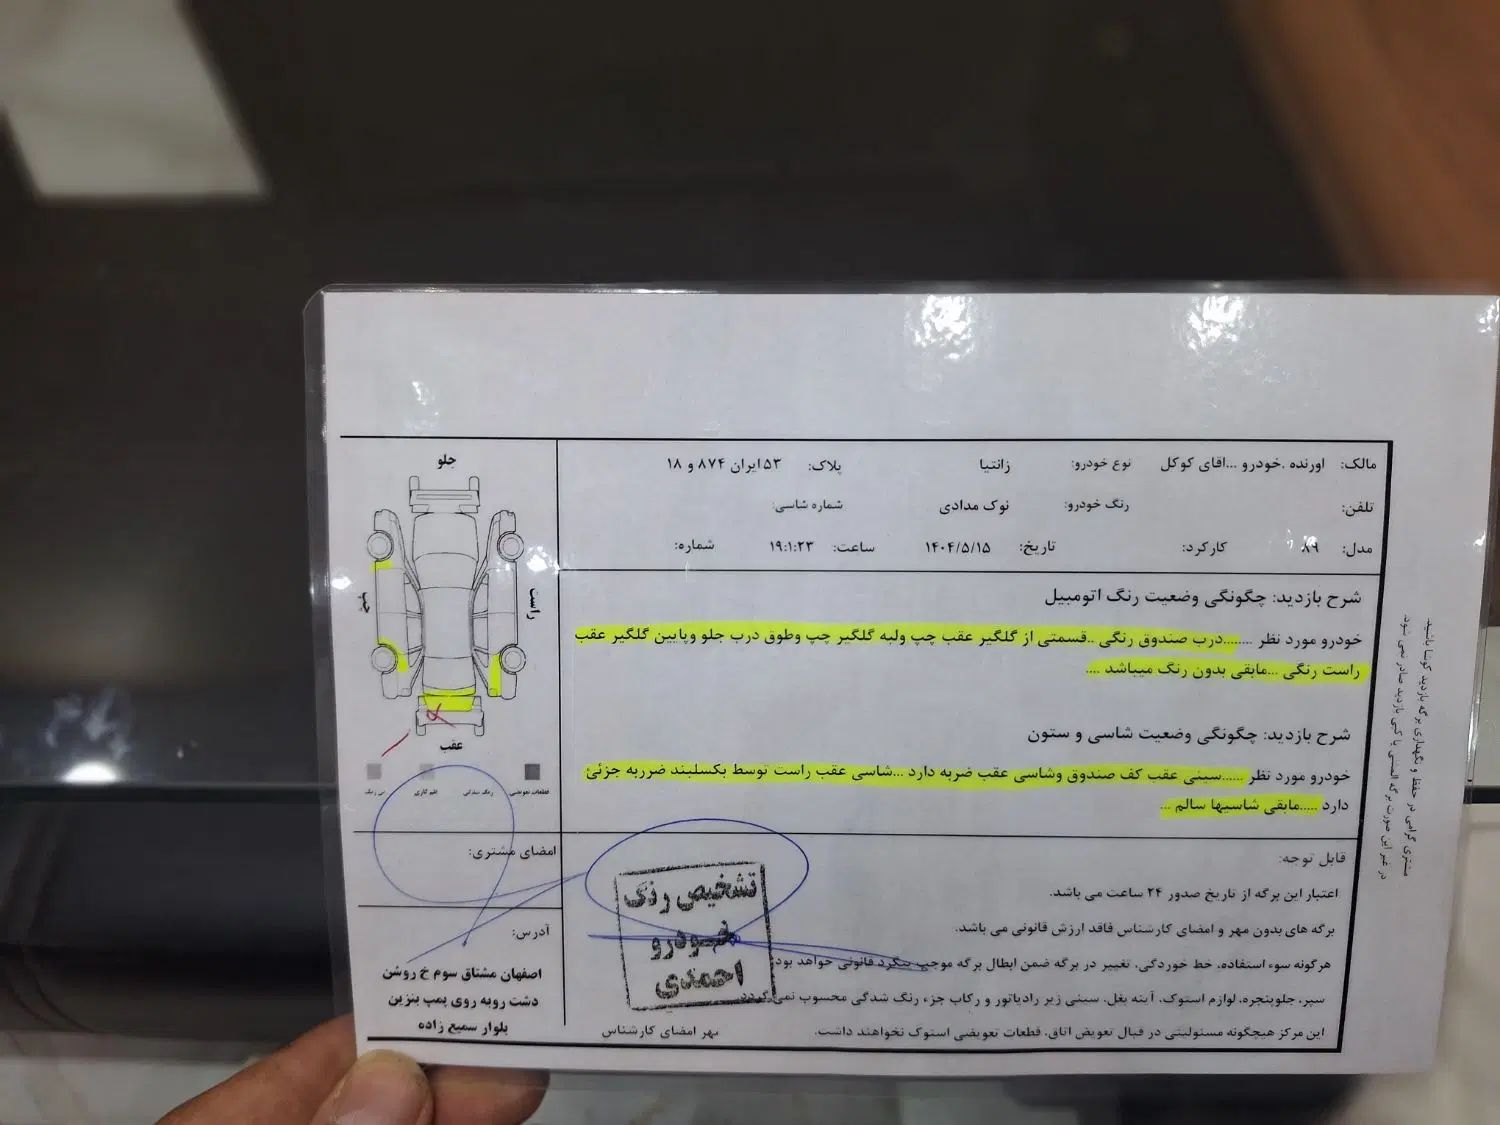 مالک: اورنده .خودرو ...اقای کوکل نوع خودرو: زانتیا پلاک: ۵۳ ایران ۸۷۴ و ۱۸
تلفن: رنگ خودرو: نوک مدادی شماره شاسی:
مدل: ۸۹ کارکرد: تاریخ: ۱۴۰۴/۵/۱۵ ساعت: ۱۹:۱:۲۳ شماره:
شرح بازدید: چگونگی وضعیت رنگ اتومبیل
خودرو مورد نظر ........درب صندوق رنگی ..قسمتی از گلگیر عقب چپ ولبه گلگیر چپ وطوق درب جلو وپایین گلگیر عقب
راست رنگی ...مابقی بدون رنگ میباشد ....
شرح بازدید: چگونگی وضعیت شاسی و ستون
خودرو مورد نظر ......سینی عقب کف صندوق وشاسی عقب ضربه دارد ...شاسی عقب راست توسط بکسلبند ضرربه جزئئ
دارد .....مابقی شاسیها سالم ...
قابل توجه:
اعتبار این برگه از تاریخ صدور ۲۴ ساعت می باشد.
برگه های بدون مهر و امضای کارشناس فاقد ارزش قانونی می باشد.
هرگونه سوء استفاده، خط خوردگی، تغییر در برگه ضمن ابطال برگه موجب پیگرد قانونی خواهد بود
سپر، جلوپنجره، لوازم استوک، آینه بغل، سینی زیر رادیاتور و رکاب جزء رنگ شدگی محسوب نمی گردد
این مرکز هیچگونه مسئولیتی در قبال تعویض اتاق، قطعات تعویضی استوک نخواهند داشت.
مهر امضای کارشناس
تشخیص رنگ
خودرو
احمدی
جلو
راست
چپ
عقب
قطعات تعویضی
رنگ شدگی
بی رنگ
امضای مشتری:
آدرس:
اصفهان مشتاق سوم خ روشن
دشت روبه روی پمپ بنزین
بلوار سمیع زاده
مشتری گرامی در حفظ و نگهداری برگه بازدید کوشا باشید.
در غیر این صورت برگه المثنی یا کپی بازدید صادر نمی شود.